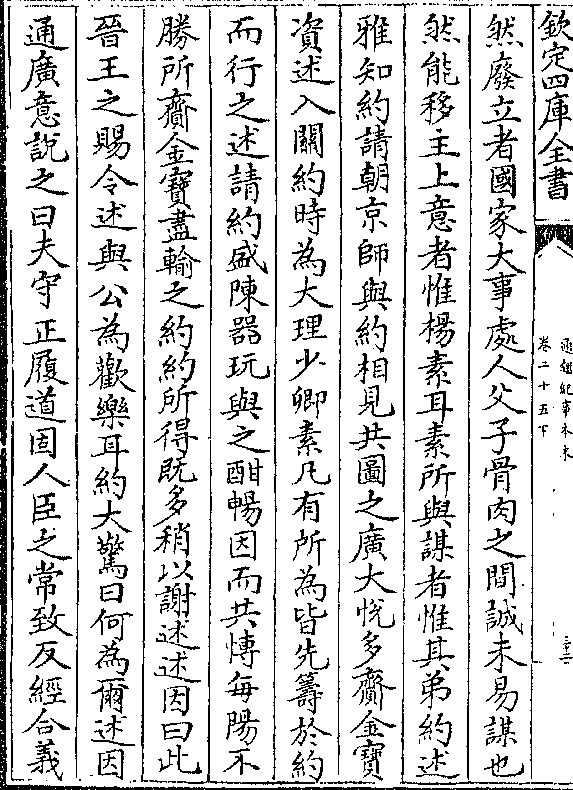 欽定四庫全書
通鑑紀事本末
卷二十五下
三十二
然廢立者國家大事處人父子骨肉之間誠未易謀也
然能移主上意者惟楊素耳素所與謀者惟其弟約述
雅知約請朝京師與約相見共圖之廣大悅多齎金寶
資述入關約時為大理少卿素凡有所為皆先籌於約
而行之述請約盛陳器玩與之酣暢因而共愽每陽不
勝所齎金寶盡輸之約約所得既多稍以謝述述因曰此
晉王之賜令述與公為歡樂耳約大驚曰何為爾述因
通廣意說之曰夫守正履道固人臣之常致反經合義